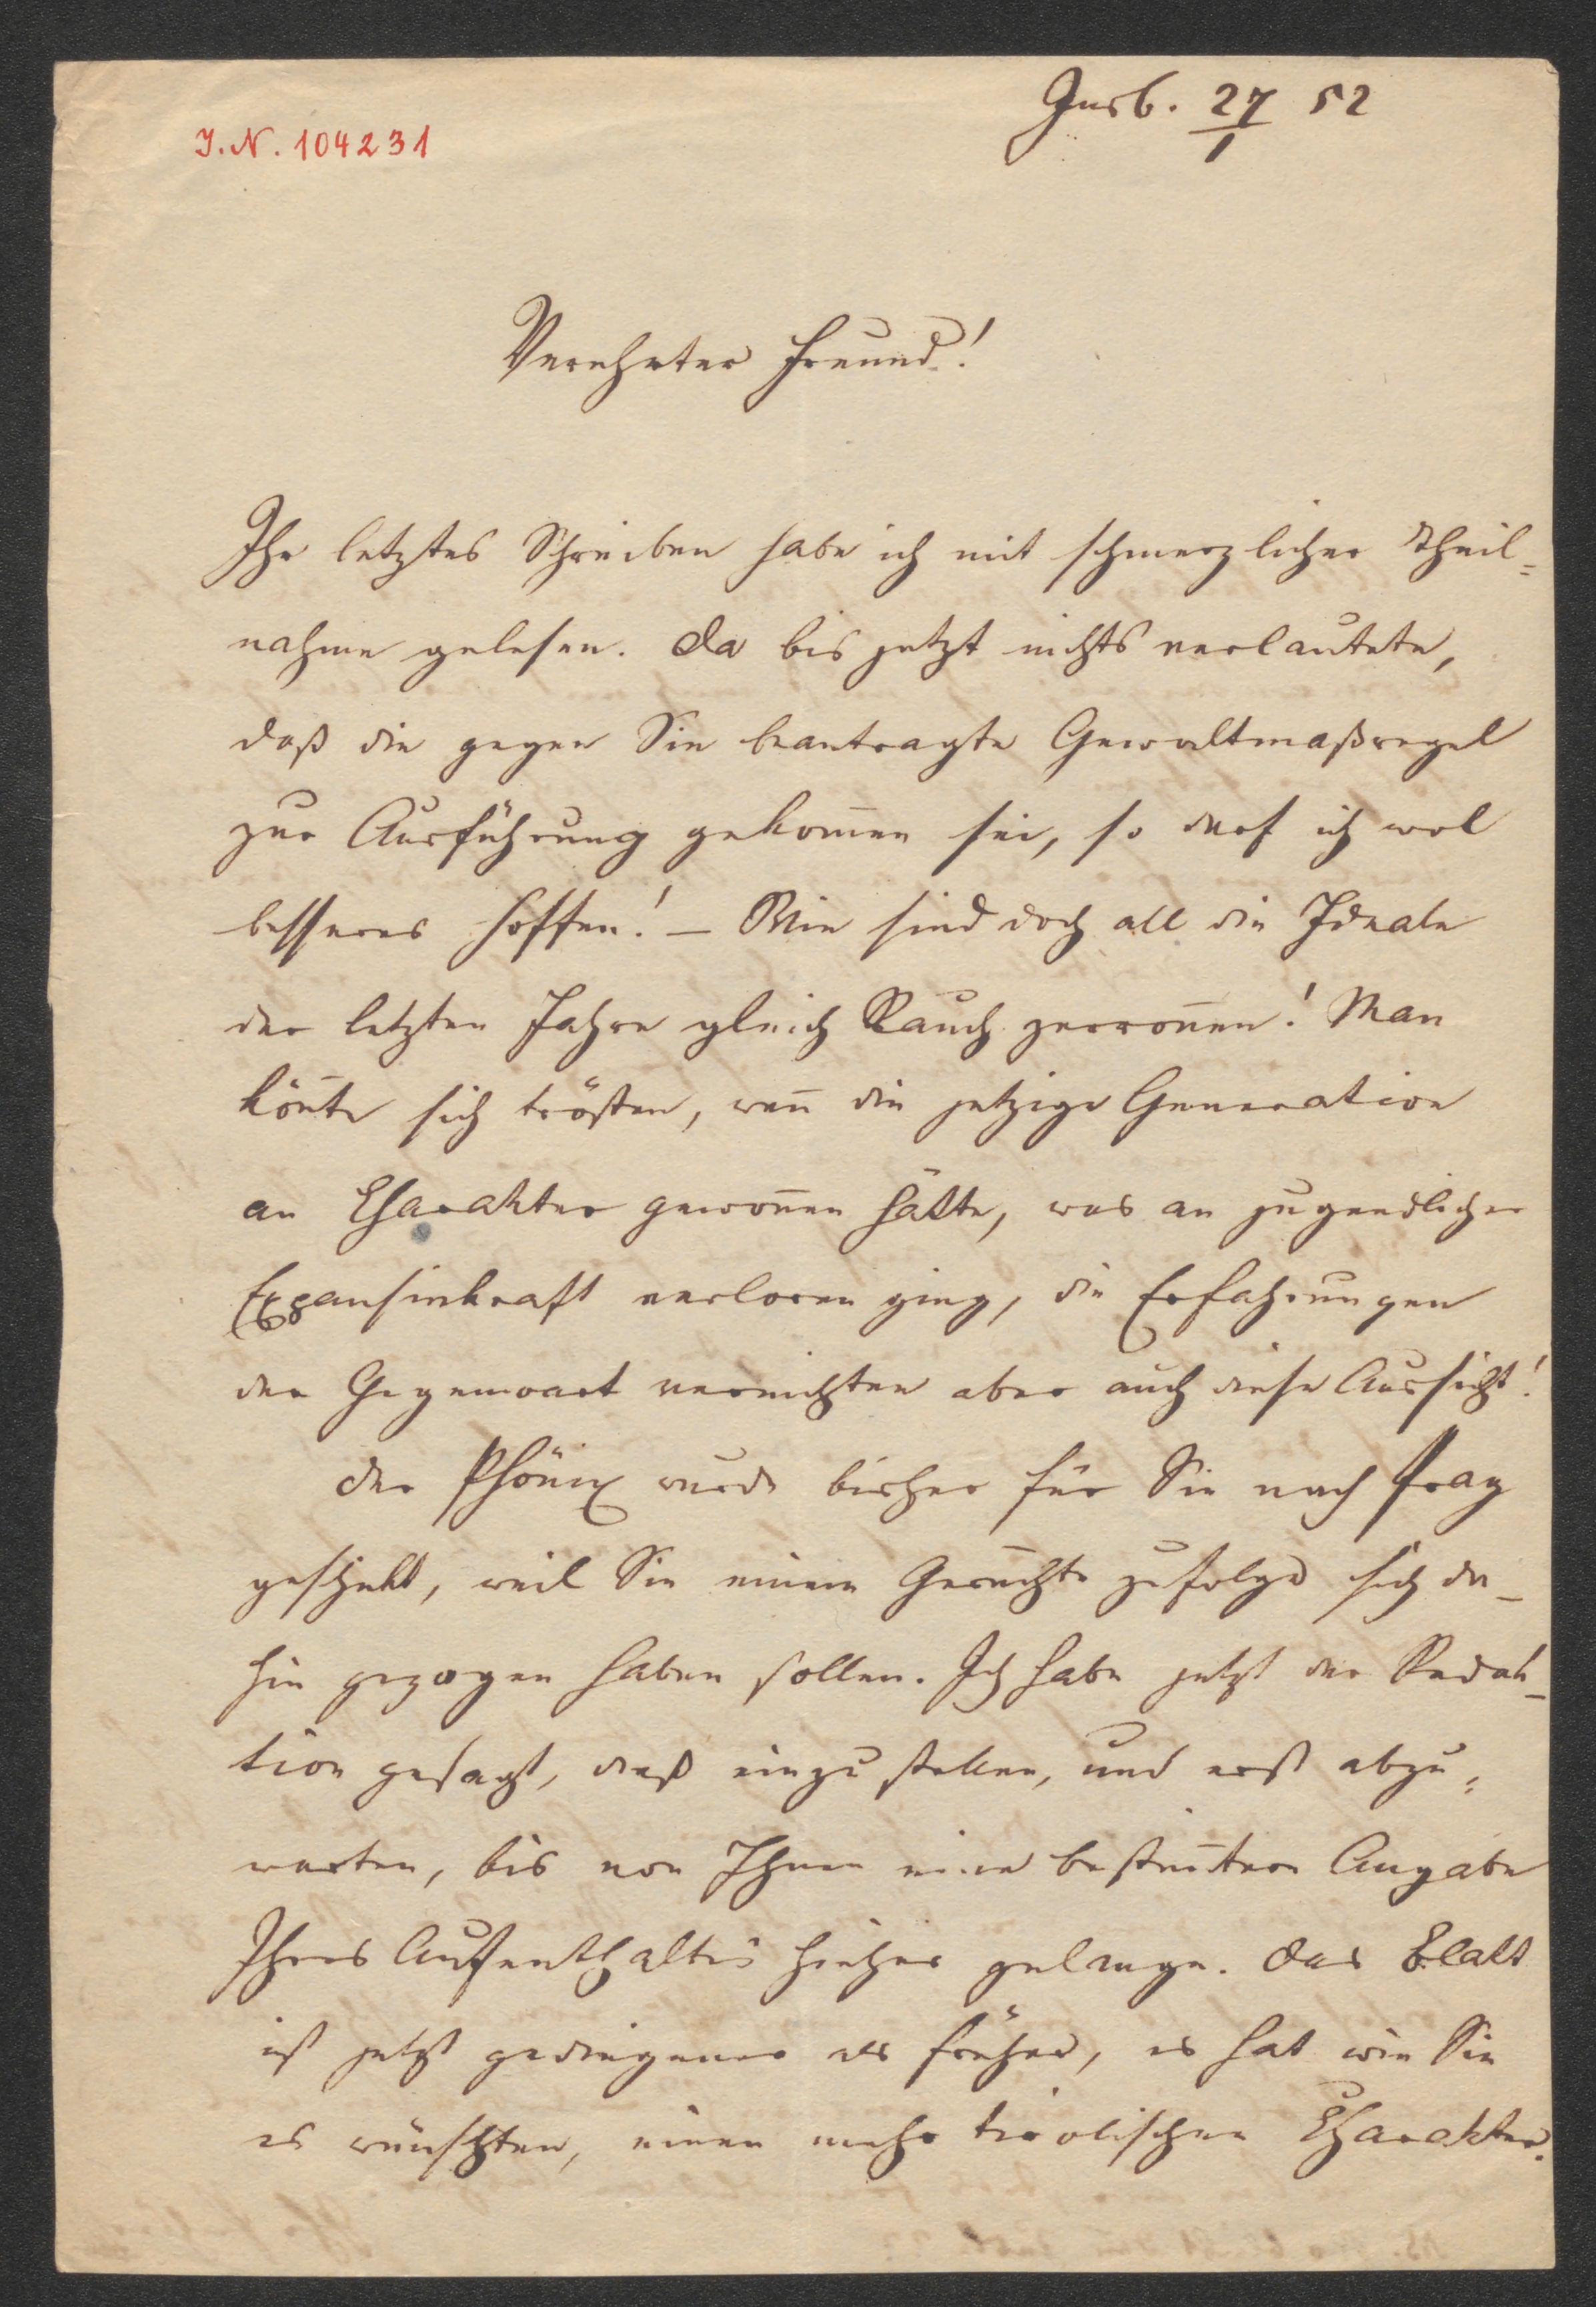 Insb. 27/1 52
I. N. 104231
Verehrter Freund!
Ihr letztes Schreiben habe ich mit schmerzlicher Theil=
nahme gelesen. Da bis jetzt nichts verlautete,
daß die gegen Sie beantragte Gewaltmaßregel
zur Ausführung gekom̄en sei, so darf ich wol
besseres hoffen! – Wie sind doch all die Ideale
der letzten Jahre gleich Rauch zerron̄en! Man
kön̄te sich trösten, wen̄ die jetzige Generation
an Charakter gewon̄en hätte, was an jugendlicher
Expansivkraft verloren ging, die Erfahrungen
der Gegenwart vernichten aber auch diese Aussicht!
Der Phönix wurde bisher für Sie nach Prag
geschickt, weil Sie einem Gerüchte zufolge sich da–
hin gezogen haben sollen. Ich habe jetzt der Redak–
tion gesagt, dieß einzustellen, und erst abzu=
warten, bis von Ihnen eine bestim̄tere Angabe
Ihres Aufenthaltes hieher gelange. Das Blatt
ist jetzt gediegener als früher, es hat wie Sie
es wünschten, einen mehr tirolischen Charakter.